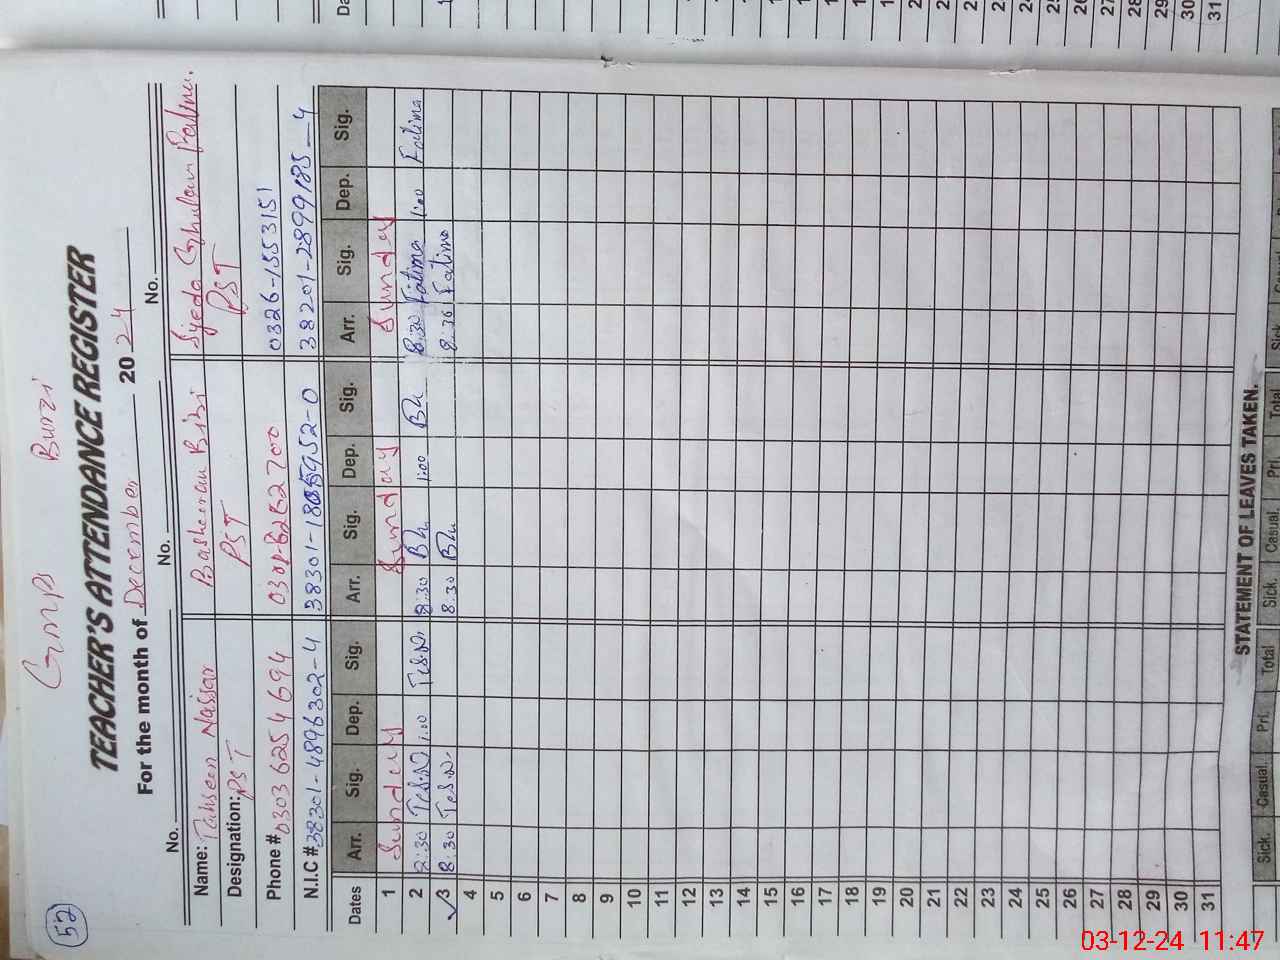 52
GMPS Burzi
TEACHER'S ATTENDANCE REGISTER
For the month of December 20 24
No. No. No.
Name: Tahseen Nassar Basheeran Bibi Syeda Ghulam Fatima.
Designation: PST PST PST
Phone # 03036254694 0326-1553151
N.I.C # 38301-4896302-4 38201-2899185-4
Dates Arr. Sig. Dep. Sig. Arr. Sig. Dep. Sig. Arr. Sig. Dep. Sig.
1 Sunday Sunday Sunday
2 8:30 1:00 8:30 1:00 8:30 Fatima 1:00 Fatima
3 8:30 8:30 8:30 Fatima
4
5
6
7
8
9
10
11
12
13
14
15
16
17
18
19
20
21
22
23
24
25
26
27
28
29
30
31
STATEMENT OF LEAVES TAKEN.
Sick. Casual. Pri. Total Sick. Casual. Pri. Total Sick.
03-12-24 11:47